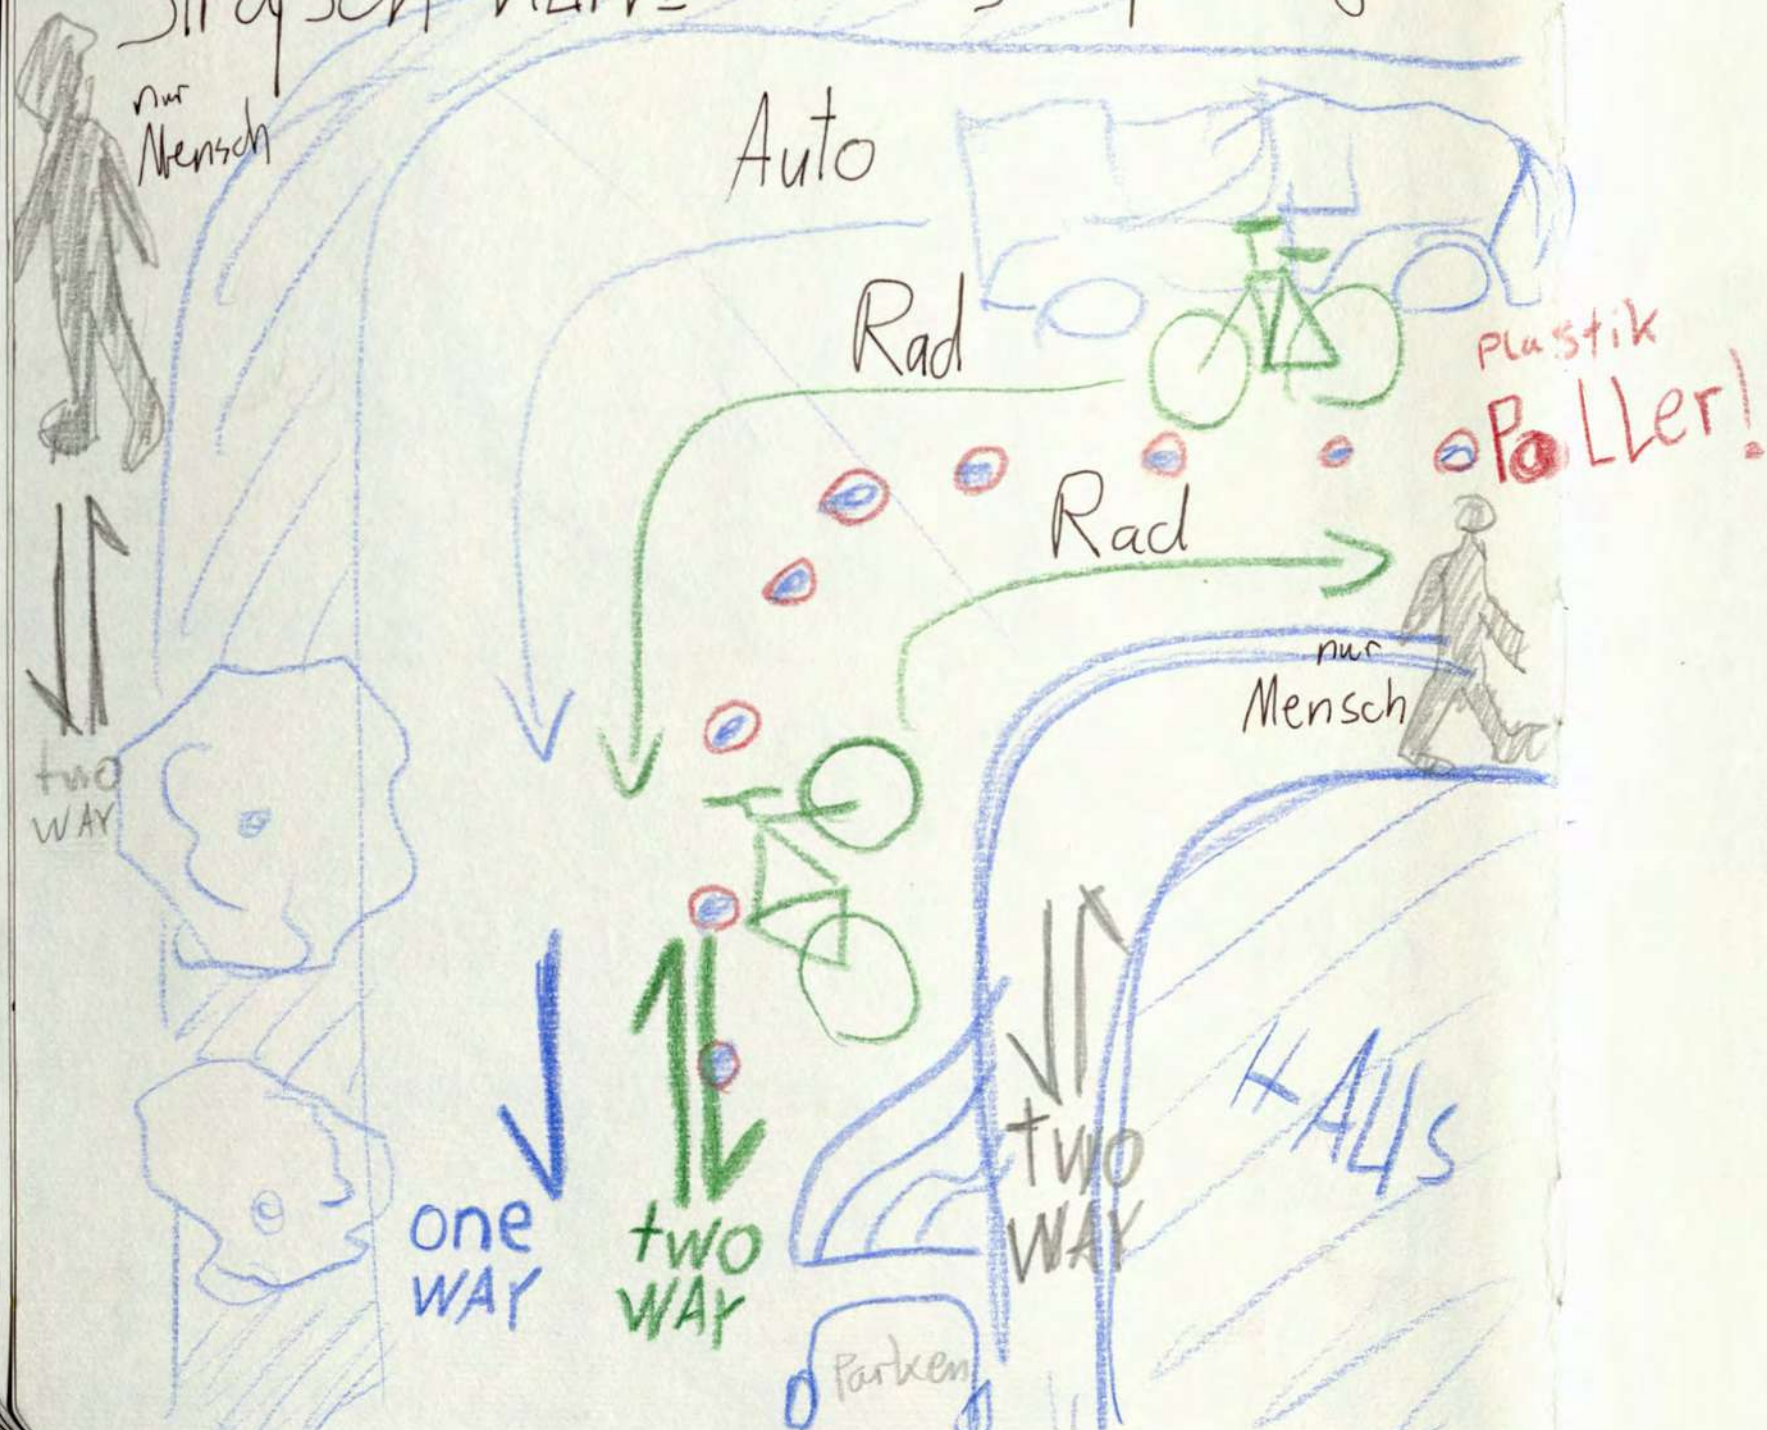 nur
Mensch
Auto
Rad
plastik
Poller!
Rad
nur
Mensch
two
WAY
HAUS
two
WAY
one
WAY
two
WAY
Parken